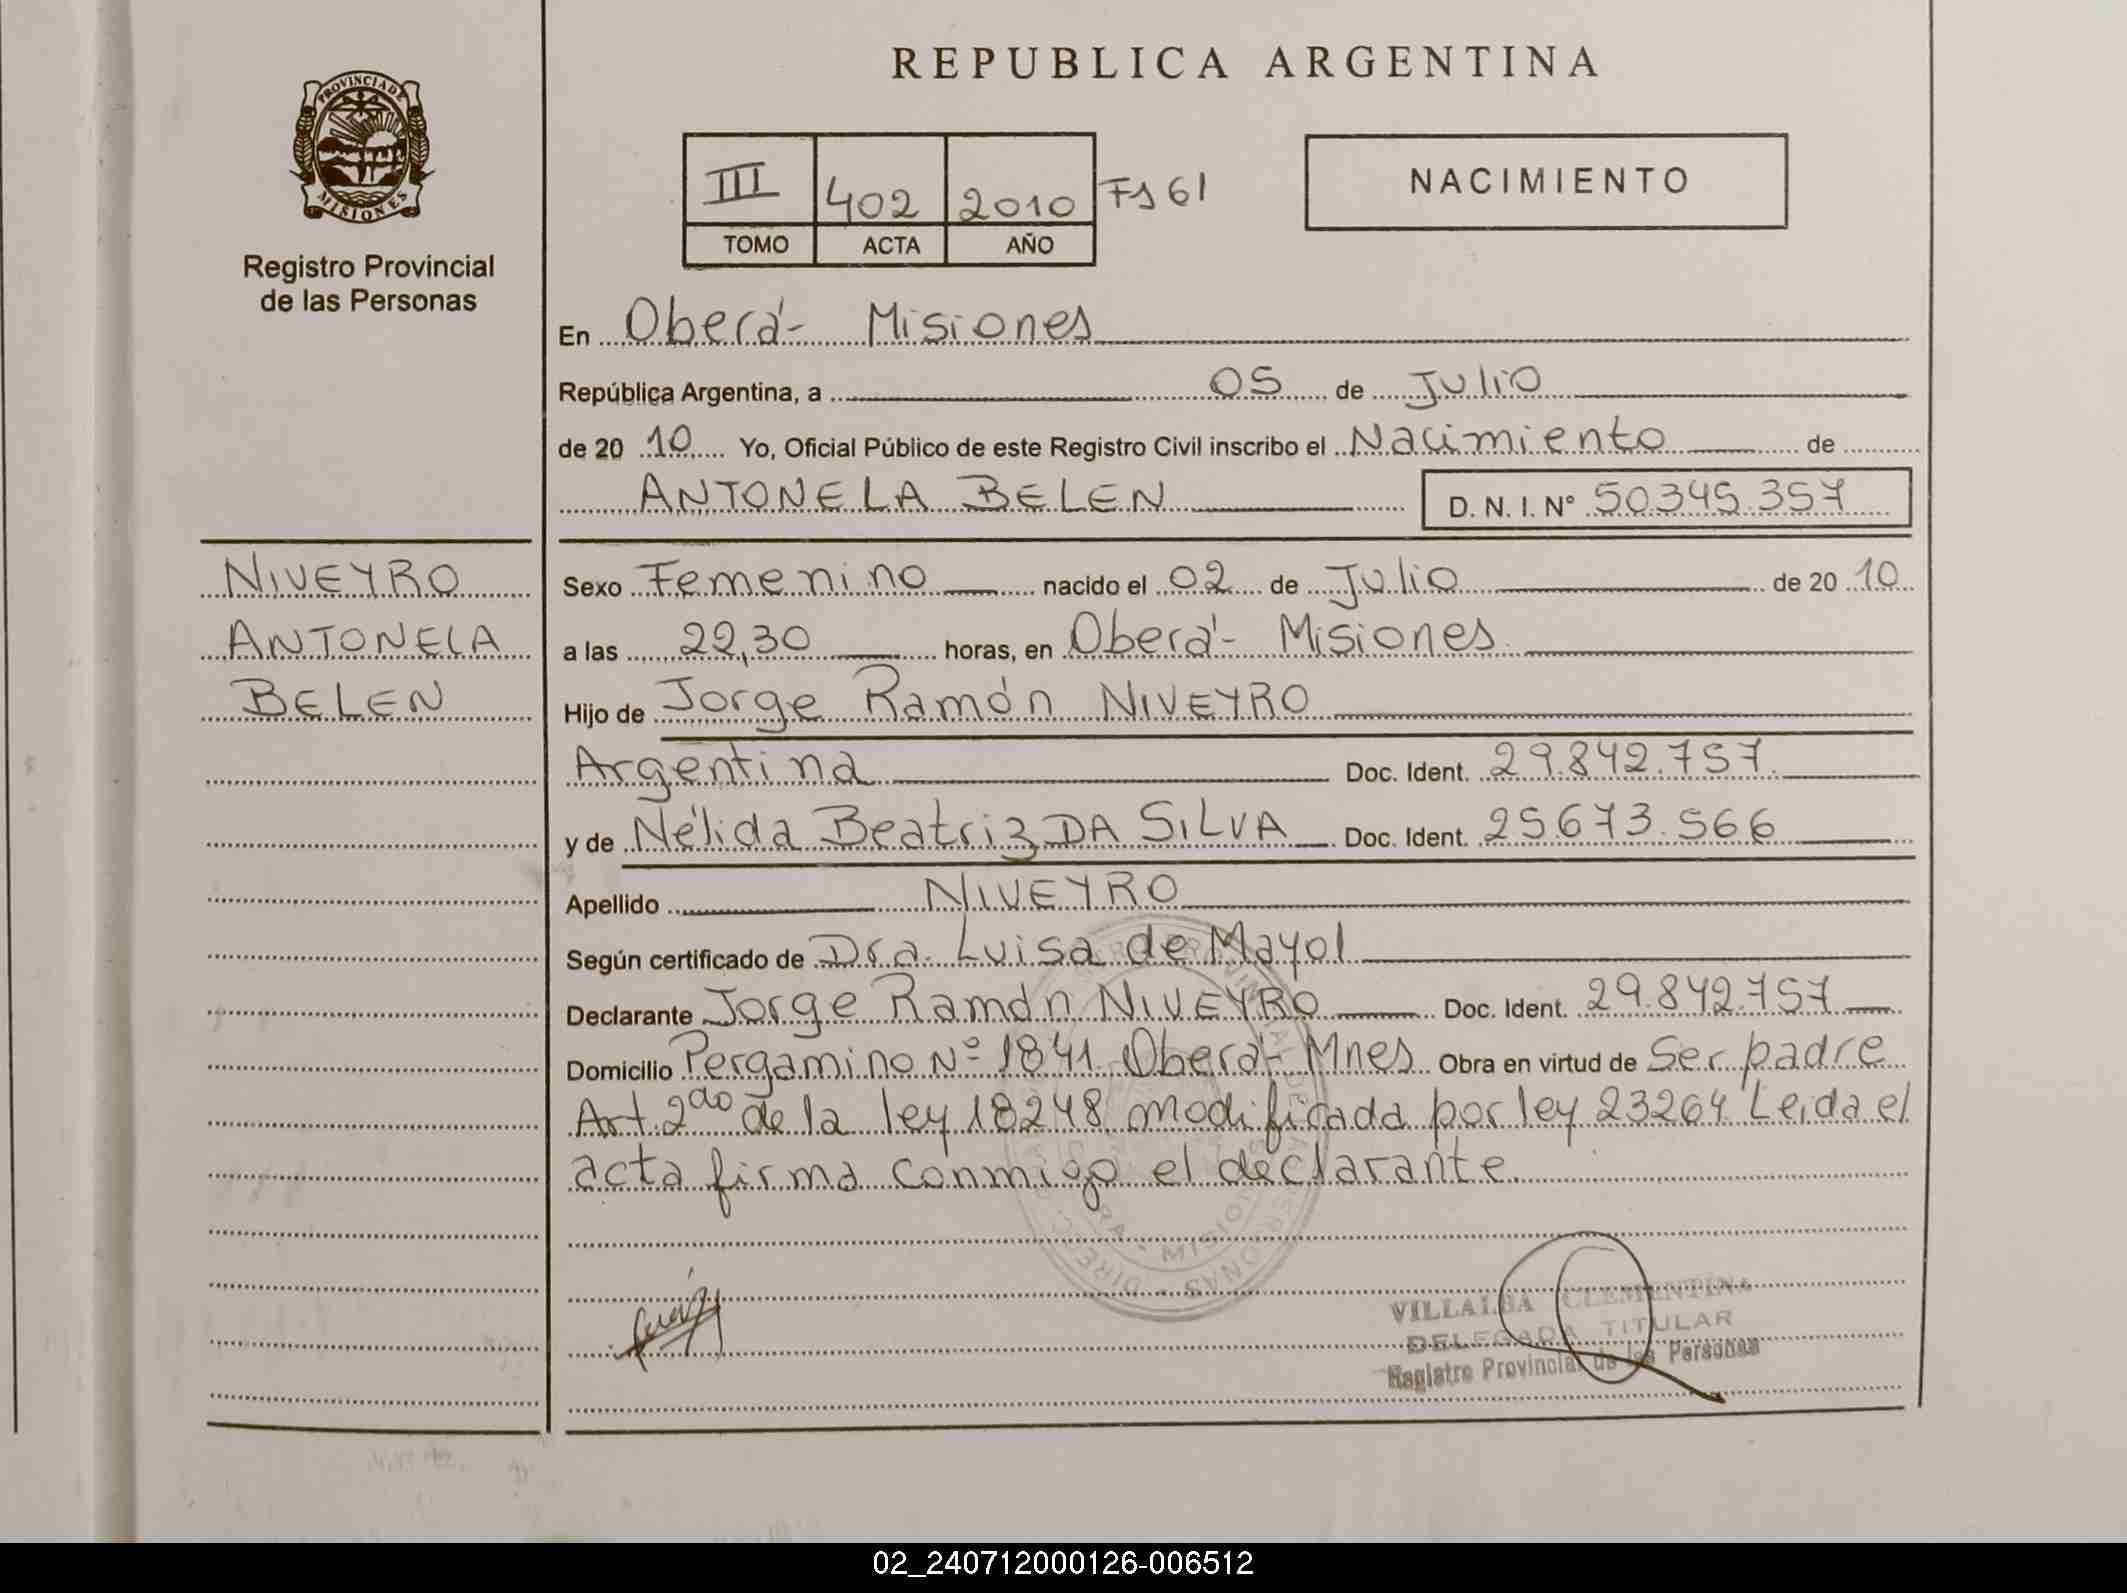 REPUBLICA ARGENTINA
PROVINCIA DE
MISIONES
Registro Provincial
de las Personas
III 402 2010 Fs 61
TOMO ACTA AÑO
NACIMIENTO
En Oberá - Misiones
República Argentina, a 05 de Julio
de 20 10 Yo, Oficial Público de este Registro Civil inscribo el Nacimiento de
ANTONELA BELEN D. N. I. Nº 50345.357
NIVEYRO
ANTONELA
BELEN
Sexo Femenino nacido el 02 de Julio de 20 10
a las 22,30 horas, en Oberá - Misiones
Hijo de Jorge Ramón NIVEYRO
Argentina Doc. Ident. 29.842.757.
y de Nélida Beatriz DA SILVA Doc. Ident. 25673.566
Apellido NIVEYRO
Según certificado de Dra. Luisa de Mayol
Declarante Jorge Ramón NIVEYRO Doc. Ident. 29.842.757
Domicilio Pergamino Nº 1841 Oberá - Mnes Obra en virtud de Ser padre
Art. 2do de la ley 18248 modificada por ley 23264 Leida el
acta firma conmigo el declarante
VILLALBA CLEMENTINA
DELEGADA TITULAR
Registro Provincial de las Personas
02_240712000126-006512